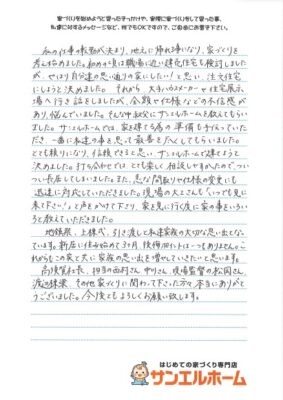 家づくりを始めようと思ったきっかけや、実際に家づくりをして思った事、
私達に対するメッセージなど、何でもOKですので、ご自由にお書き下さい。
私の仕事の転勤が決まり、地元に帰れる事になり、家づくりを
考え始めました。初めの頃は職場に近い建売住宅も検討しました
が、やはり自分達の思い通りの家にしたい!と思い、注文住宅
にしようと決めました。それから、大手ハウスメーカーや住宅展示
場へ行き話をしましたが、金額や仕様などの不信感が
あり、悩んでいました。そんな中叔父にサンエルホームを教えてもらい
ました。サンエルホームでは、家を建てる為の準備も手伝っていた
だき、一番に私達の事を思って最善をつくしてもらいました。
とても頼りになり、信頼できると思い、サンエルホームで建てようと
決めました。打ち合わせでは、とても楽しく相談しやすかったので、つい
つい長居してしまいました。また、急な間取りや仕様の変更にも
迅速に対応していただきました。現場の大工さんも「いつでも見に
来て下さい!」と声をかけて下さり、家を見に行く度に家の事をいろい
ろと教えていただきました。
地鎮祭、上棟式、引き渡しと私達家族の大切な思い出となっ
ています。新居に住み始めて3ヶ月、後悔ポイントは一つもありません。こ
れからもこの家と共に家族の思い出を増やしていきたいと思います。
高須賀社長、担当の西村さん、中川さん、現場監督の松岡さん、
渡辺様、その他家づくりに関わって下さった方々、本当にありがと
うございました。今後ともよろしくお願い致します。
はじめての家づくり専門店
サンエルホーム